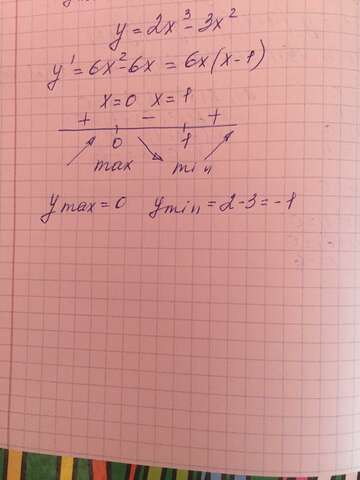 y = 2x³ - 3x²
y' = 6x² - 6x = 6x(x-1)
x=0 x=1
+ - +
0 1
max min
y max = 0 y min = 2-3 = -1